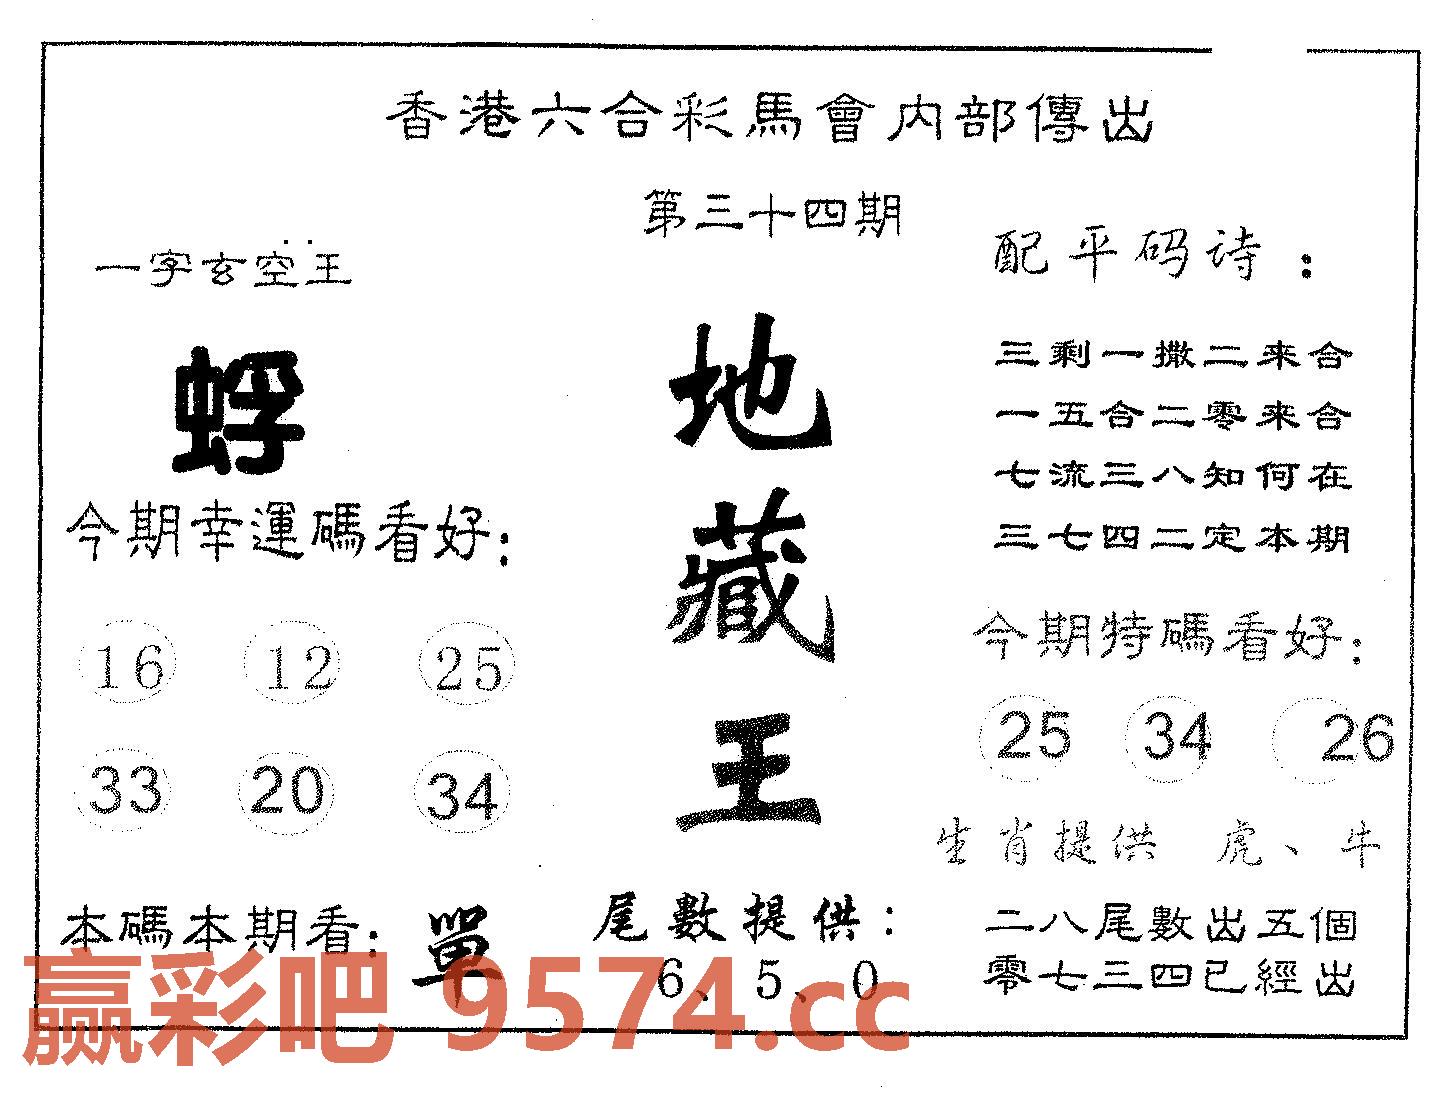 香港六合彩馬會内部傳出
第三十四期
一字玄空王
蜉
今期幸運碼看好:
16 12 25
33 20 34
本碼本期看: 單
地
藏
王
尾數提供:
6、5、0
配平码诗:
三剩一撒二来合
一五合二零来合
七流三八知何在
三七四二定本期
今期特碼看好:
25 34 26
生肖提供 虎、牛
二八尾數出五個
零七三四已經出
赢彩吧 9574.cc